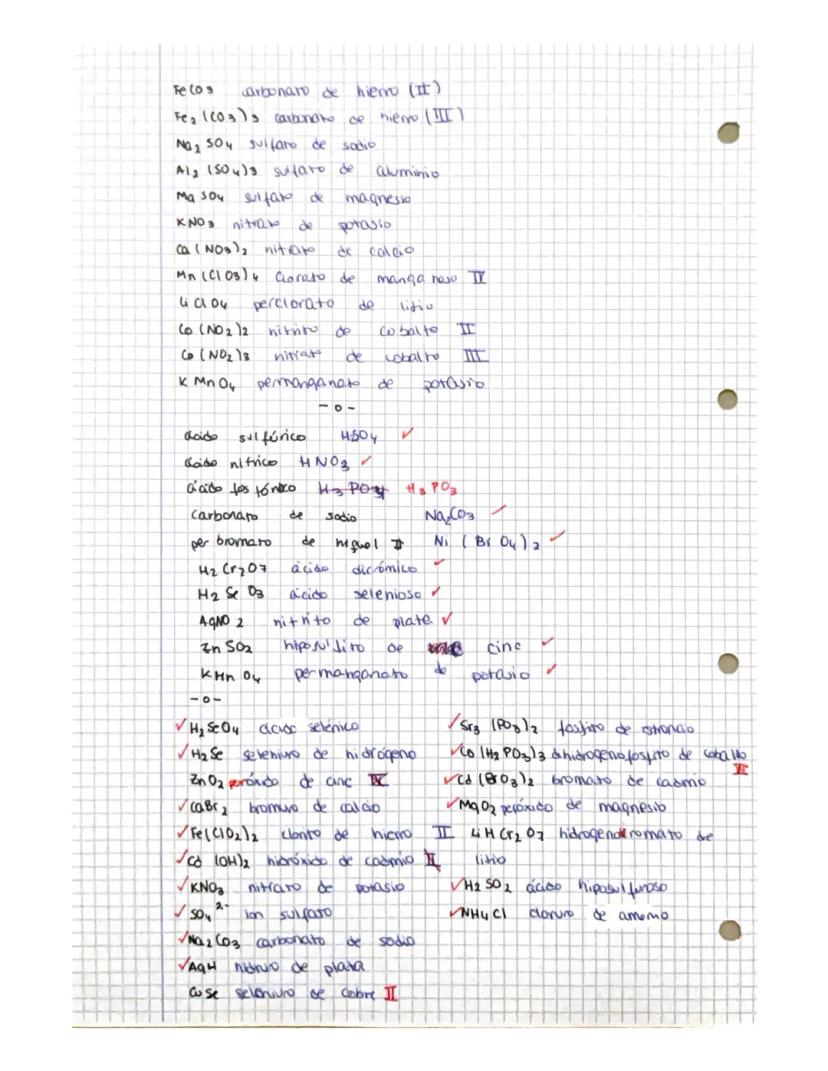 FeCO3 carbonato de hierro (II)
Fe2 (CO3)3 carbonato de hierro (III)
Na2 SO4 sulfato de sodio
Al2 (SO4)3 sulfato de aluminio
Mg SO4 sulfato de magnesio
KNO3 nitrato de potasio
Ca (NO3)2 nitrato de calcio
Mn (ClO3)4 clorato de manganeso IV
LiClO4 perclorato de litio
Co (NO2)2 nitrito de cobalto II
Co (NO2)3 de cobalto III
K MnO4 permanganato de potasio
-o-
ácido sulfúrico ✓
ácido nítrico HNO3 ✓
ácido fosfónico H3 PO4 H3 PO3
carbonato de sodio Na2CO3 ✓
per bromato de níquel II Ni (BrO4)2 ✓
H2 Cr2O7 ácido dicrómico ✓
H2 Se O3 ácido selenioso ✓
AgNO2 nitrito de plata ✓
Zn SO2 hiposulfito de cinc ✓
KMn O4 permanganato de potasio ✓
-o-
✓ H2 SeO4 ácido selénico
✓ H2 Se seleniuro de hidrógeno
ZnO2 peróxido de cinc
✓ CaBr2 bromuro de calcio
✓ Fe(ClO2)2 clorito de hierro II
✓ Cd (OH)2 hidróxido de cadmio II
✓ KNO3 nitrato de potasio
✓ SO4 2- ion sulfato
✓ Na2 CO3 carbonato de sodio
✓ AgH hidruro de plata
CuSe seleniuro de cobre II
✓ Sr3 (PO3)2 fosfito de estroncio
✓ Co (H2 PO3)3 dihidrogenofosfito de cobalto III
✓ Cd (BrO3)2 bromato de cadmio
✓ MgO2 peróxido de magnesio
LiH Cr2 O7 de
litio
✓ H2 SO2 ácido hiposulfuroso
✓ NH4 Cl cloruro de amonio